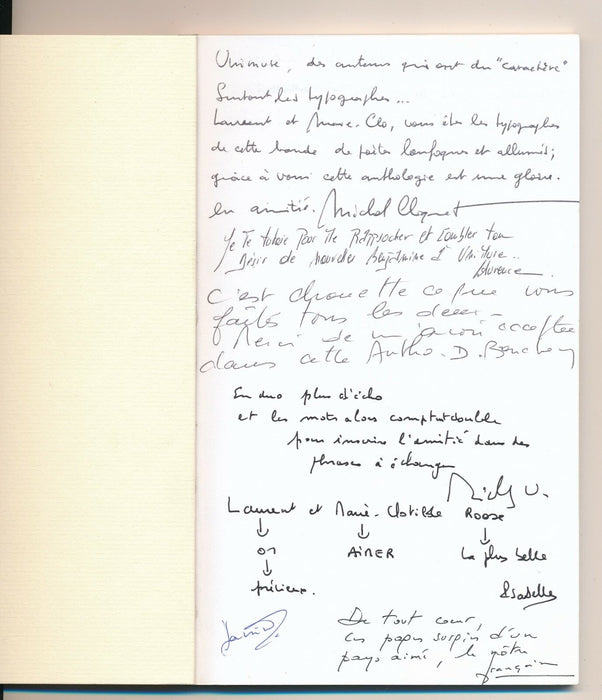 Unimuse, des auteurs qui ont du "caractère"
Surtout les typographes...
Laurent et Marie-Clo, vous êtes les typographes
de cette bande de poètes loufoques et allumés;
grâce à vous cette anthologie est une gloire.
en amitié. Michel Cliquet
Je te tutoie pour me Rapprocher et combler ton
désir de nouvelle benjamine d'Unimuse..
Florence
C'est chouette ce que vous
faites tous les deux.
Merci de m'avoir acceptée
dans cette Antho. D.
En duo plus d'écho
et les mots alors comptent double
pour inscrire l'amitié dans des
phrases à échanger
Laurent et Marie-Clotilde Roose
↓ ↓ ↓
or AIMER La plus belle
↓
précieux. Isabelle
De tout coeur,
ces pages surgies d'un
pays aimé, le nôtre
Françoise